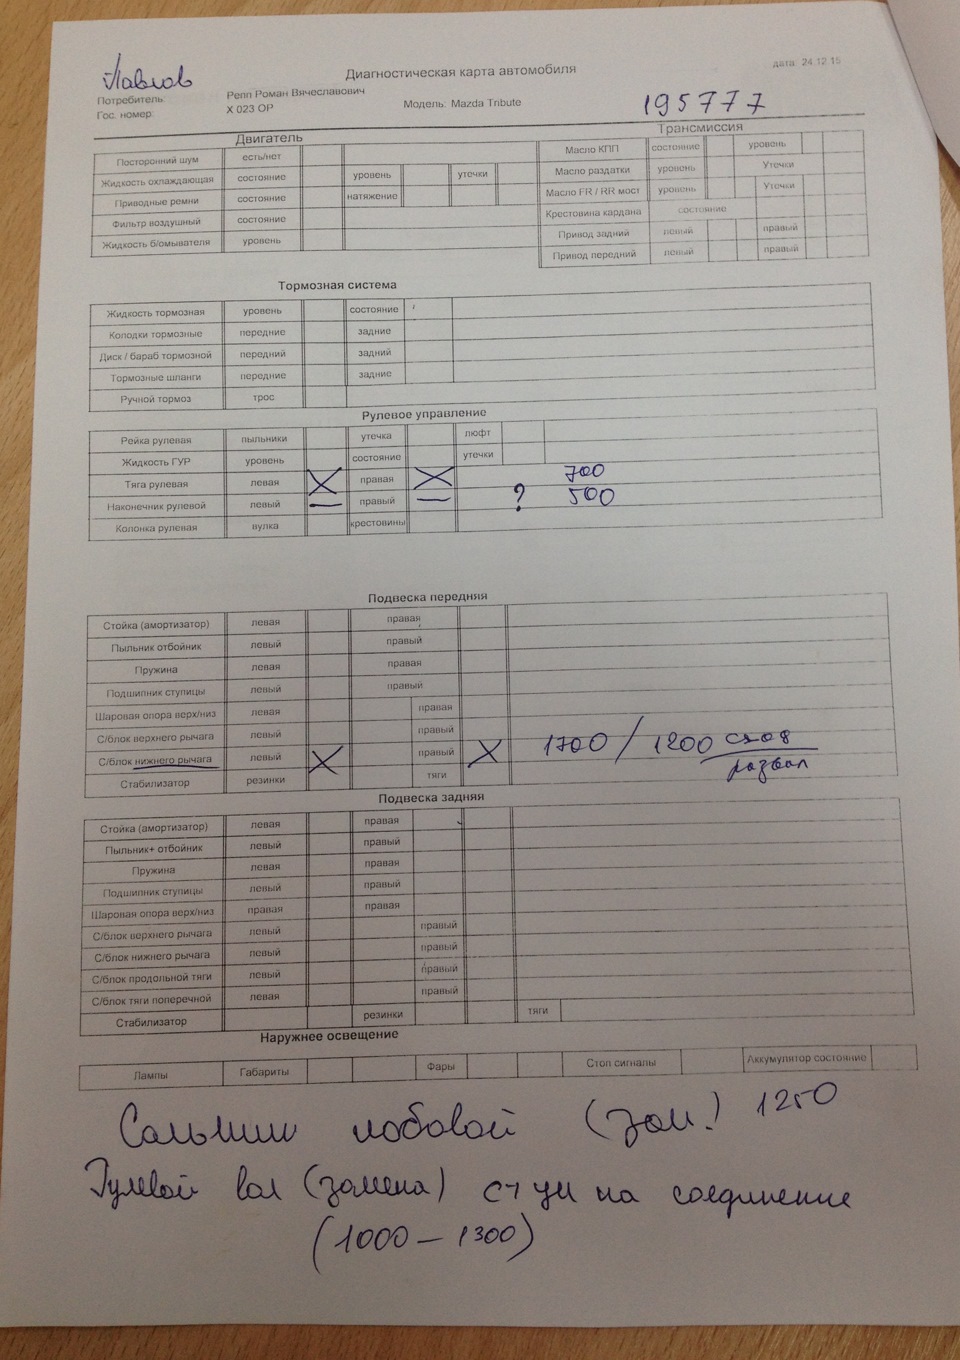 Павлов
Диагностическая карта автомобиля
дата: 24.12.15
Потребитель: Репп Роман Вячеславович
Гос. номер: Х 023 ОР Модель: Mazda Tribute 195777
Двигатель
Посторонний шум есть/нет
Жидкость охлаждающая состояние уровень утечки
Приводные ремни состояние натяжение
Фильтр воздушный состояние
Жидкость б/омывателя уровень
Трансмиссия
Масло КПП состояние уровень
Масло раздатки уровень Утечки
Масло FR / RR мост уровень Утечки
Крестовина кардана состояние
Привод задний левый правый
Привод передний левый правый
Тормозная система
Жидкость тормозная уровень состояние
Колодки тормозные передние задние
Диск / бараб тормозной передний задний
Тормозные шланги передние задние
Ручной тормоз трос
Рулевое управление
Рейка рулевая пыльники утечка люфт
Жидкость ГУР уровень состояние утечки
Тяга рулевая левая X правая X 700
Наконечник рулевой левый — правый — ? 500
Колонка рулевая вулка крестовины
Подвеска передняя
Стойка (амортизатор) левая правая
Пыльник отбойник левый правый
Пружина левая правая
Подшипник ступицы левый правый
Шаровая опора верх/низ левая правая
С/блок верхнего рычага левый правый
С/блок нижнего рычага левый X правый X 1700 / 1200 сход
развал
Стабилизатор резинки тяги
Подвеска задняя
Стойка (амортизатор) левая правая
Пыльник+ отбойник левый правый
Пружина левая правая
Подшипник ступицы левый правый
Шаровая опора верх/низ правая правая
С/блок верхнего рычага левый правый
С/блок нижнего рычага левый правый
С/блок продольной тяги левый правый
С/блок тяги поперечной левая правый
Стабилизатор резинки тяги
Наружнее освещение
Лампы Габариты Фары Стоп сигналы Аккумулятор состояние
лобовой (зам.) 1250
Рулевой вал (замена) стук на соединение
(1000 – 1300)